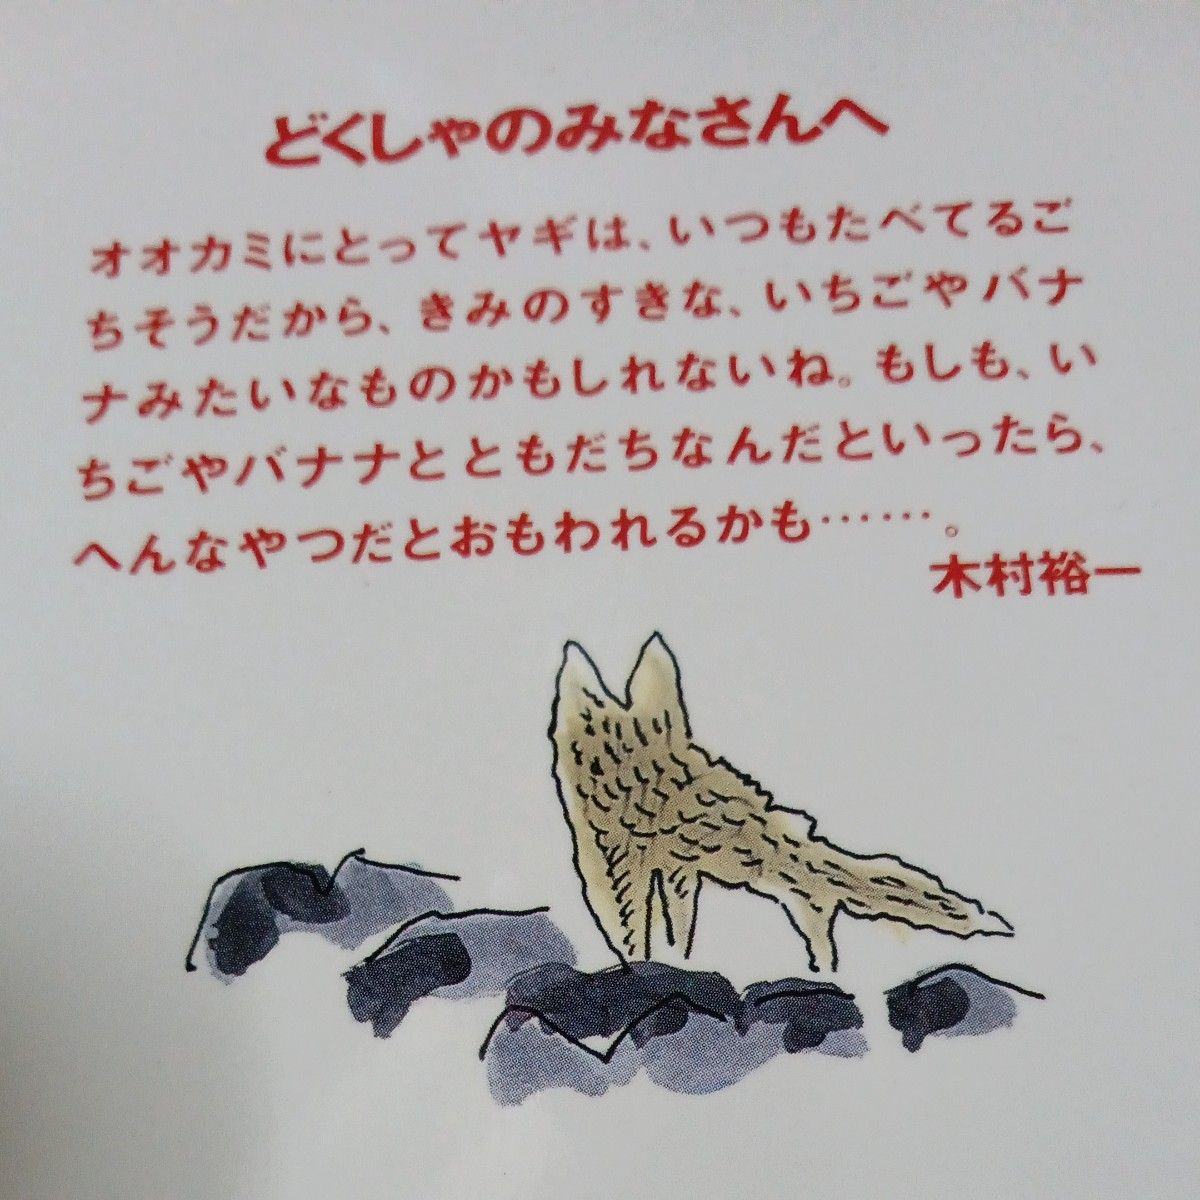 どくしゃのみなさんへ
オオカミにとってヤギは、いつもたべてるご
ちそうだから、きみのすきな、いちごやバナ
ナみたいなものかもしれないね。もしも、い
ちごやバナナとともだちなんだといったら、
へんなやつだとおもわれるかも……。
木村裕一